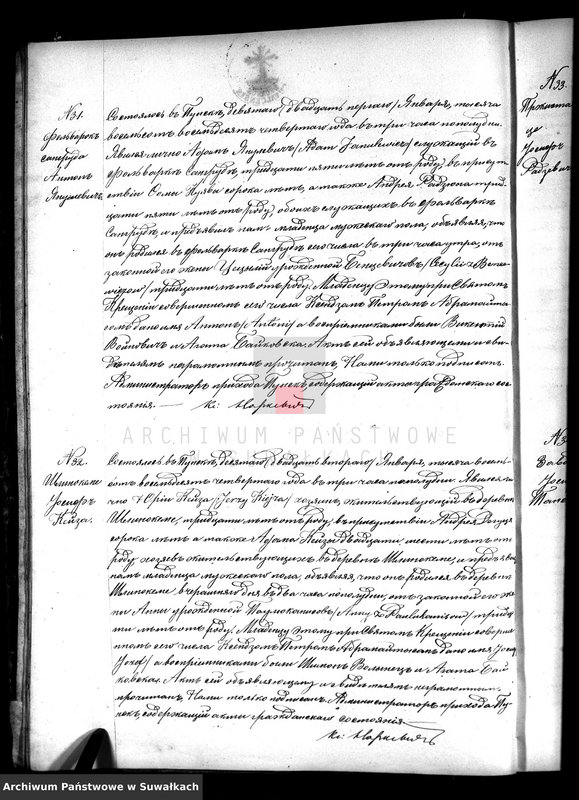 N31.
Фольварокъ
Сангруда
Антонъ
Янулевичъ
Состоялось въ Пунскѣ, девятаго (двадцать перваго) Января, тысяча
восемьсотъ восемьдесятъ четвертаго года въ три часа пополудни.
Явился лично Адамъ Янулевичъ (Adam Janulewicz) служащій въ
фольваркѣ Сангрудѣ, тридцати пяти лѣтъ отъ роду, въ присут-
ствіи сорока лѣтъ, а также Андрея трид-
цати пяти лѣтъ отъ роду, обоихъ служащихъ въ фольваркѣ
Сангрудѣ, и предъявилъ намъ младенца мужескаго пола, объявляя, что
онъ родился въ фольваркѣ Сангрудѣ сего числа въ три часа утра, отъ
законной его жены урожденной
тридцати лѣтъ отъ роду. Младенцу этому при Святомъ
Крещеніи совершенномъ сего числа Ксендзомъ Петромъ
дано имя Антонъ (Antoni) а воспріемниками были Викентій
Войновичъ и Агата Байковска. Актъ сей объявляющему и сви-
дѣтелямъ неграмотнымъ прочитанъ, Нами только подписанъ.
Администраторъ прихода Пунскъ содержащій акты гражданскаго сос-
тоянія. —
N32.
Шлинокеме
Іосифъ
Кейза.
Состоялось въ Пунскѣ, десятаго (двадцать втораго) Января, тысяча восемь-
сотъ восемьдесятъ четвертаго года въ три часа пополудни. Явился ли-
чно Юрій Кейза (Jerzy Kiejza) хозяинъ, жительствующій въ деревнѣ
Шлинокеме, тридцати лѣтъ отъ роду, въ присутствіи Андрея
сорока лѣтъ а также Адама Кейзы двадцати шести лѣтъ отъ
роду, хозяевъ жительствующихъ въ деревнѣ Шлинокеме, и предъявилъ
намъ младенца мужескаго пола, объявляя, что онъ родился въ деревнѣ
Шлинокеме вчерашняго дня въ два часа пополудни, отъ законной его же-
ны Анны урожденной тридца-
ти лѣтъ отъ роду. Младенцу этому при Святомъ Крещеніи соверше-
нномъ сего числа Ксендзомъ Петромъ дано имя Іосифъ
(Józef) а воспріемниками были Шимонъ и Агата Бай-
ковска. Актъ сей объявляющему и свидѣтелямъ неграмотнымъ
прочитанъ, Нами только подписанъ. Администраторъ прихода Пу-
нскъ содержащій акты гражданскаго состоянія —
N33.
Іосифъ
ARCHIWUM PAŃSTWOWE
W SUWAŁKACH
Archiwum Państwowe w Suwałkach